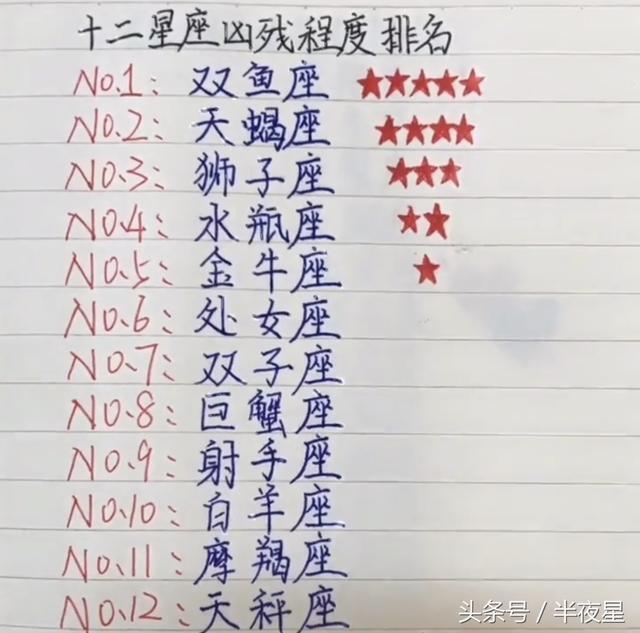 十二星座凶残程度排名
No.1：双鱼座 ★★★★★
No.2：天蝎座 ★★★★
No.3：狮子座 ★★★
No.4：水瓶座 ★★
No.5：金牛座 ★
No.6：处女座
No.7：双子座
No.8：巨蟹座
No.9：射手座
No.10：白羊座
No.11：摩羯座
No.12：天秤座
头条号 / 半夜星